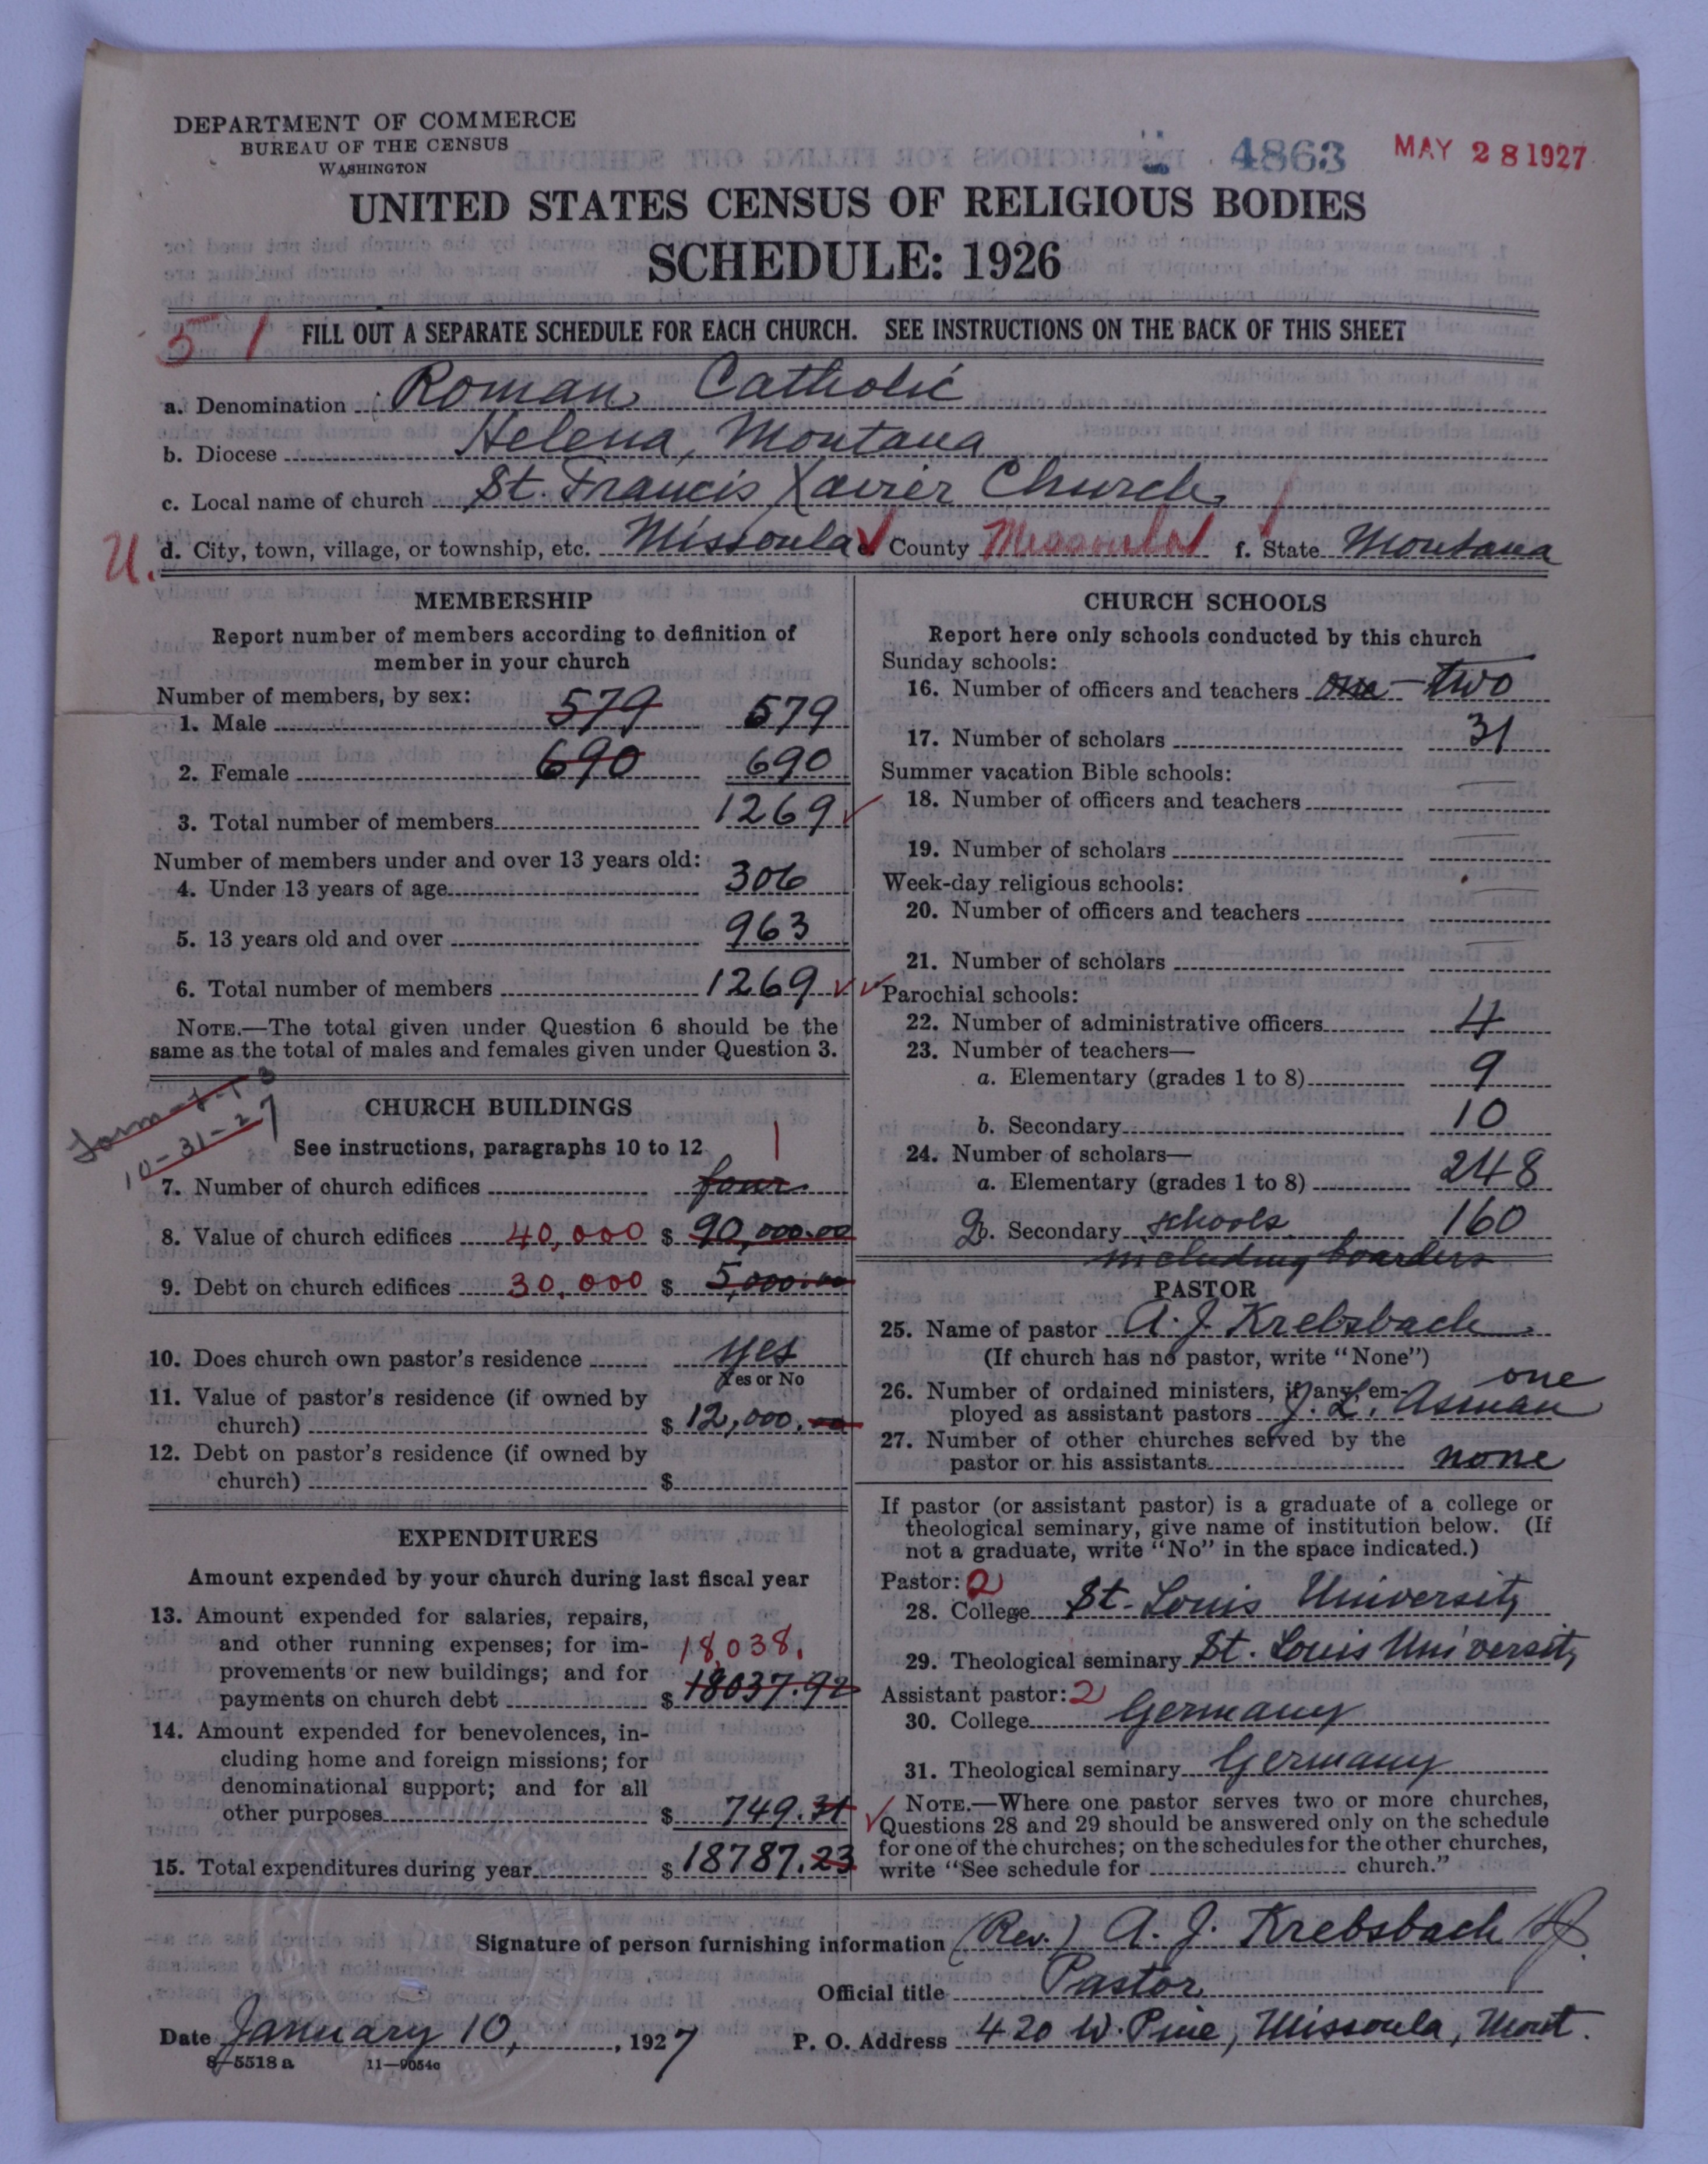 DEPARTMENT OF COMMERCE
BUREAU OF THE CENSUS
WASHINGTON
4863 MAY 28 1927
UNITED STATES CENSUS OF RELIGIOUS BODIES
SCHEDULE: 1926
5 1 FILL OUT A SEPARATE SCHEDULE FOR EACH CHURCH. SEE INSTRUCTIONS ON THE BACK OF THIS SHEET
a. Denomination Roman Catholic
b. Diocese Helena, Montana
c. Local name of church St. Francis Xavier Church
U. d. City, town, village, or township, etc. Missoula e. County Missoula f. State Montana
MEMBERSHIP
Report number of members according to definition of
member in your church
Number of members, by sex:
1. Male 579 579
2. Female 690 690
3. Total number of members 1269
Number of members under and over 13 years old:
4. Under 13 years of age 306
5. 13 years old and over 963
6. Total number of members 1269
NOTE.—The total given under Question 6 should be the
same as the total of males and females given under Question 3.
10-31-27
CHURCH BUILDINGS
See instructions, paragraphs 10 to 12
7. Number of church edifices four 1
8. Value of church edifices 40,000 $ 90,000.00
9. Debt on church edifices 30,000 $ 5,000.00
10. Does church own pastor's residence yes
Yes or No
11. Value of pastor's residence (if owned by
church) $ 12,000.00
12. Debt on pastor's residence (if owned by
church) $
EXPENDITURES
Amount expended by your church during last fiscal year
13. Amount expended for salaries, repairs,
and other running expenses; for im- 18,038.
provements or new buildings; and for
payments on church debt $ 18037.92
14. Amount expended for benevolences, in-
cluding home and foreign missions; for
denominational support; and for all
other purposes $ 749.31
15. Total expenditures during year $ 18787.23
CHURCH SCHOOLS
Report here only schools conducted by this church
Sunday schools:
16. Number of officers and teachers one - two
17. Number of scholars 31
Summer vacation Bible schools:
18. Number of officers and teachers —
19. Number of scholars —
Week-day religious schools:
20. Number of officers and teachers —
21. Number of scholars —
Parochial schools:
22. Number of administrative officers 4
23. Number of teachers—
a. Elementary (grades 1 to 8) 9
b. Secondary 10
24. Number of scholars—
a. Elementary (grades 1 to 8) 248
2 b. Secondary schools 160
including boarders
PASTOR
25. Name of pastor A. J. Krebsbach
(If church has no pastor, write "None")
26. Number of ordained ministers, if any, em- one
ployed as assistant pastors J. L. Asman
27. Number of other churches served by the
pastor or his assistants none
If pastor (or assistant pastor) is a graduate of a college or
theological seminary, give name of institution below. (If
not a graduate, write "No" in the space indicated.)
Pastor: 2
28. College St. Louis University
29. Theological seminary St. Louis University
Assistant pastor: 2
30. College Germany
31. Theological seminary Germany
NOTE.—Where one pastor serves two or more churches,
Questions 28 and 29 should be answered only on the schedule
for one of the churches; on the schedules for the other churches,
write "See schedule for church."
Signature of person furnishing information (Rev.) A. J. Krebsbach SJ
Official title Pastor
Date January 10, 1927 P. O. Address 420 W. Pine, Missoula, Mont.
8-5518 a 11-9054c